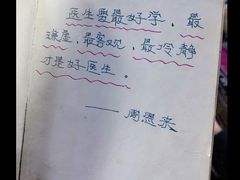 医生要最好学、最
谦虚、最客观、最冷静
才是好医生。
——周恩来